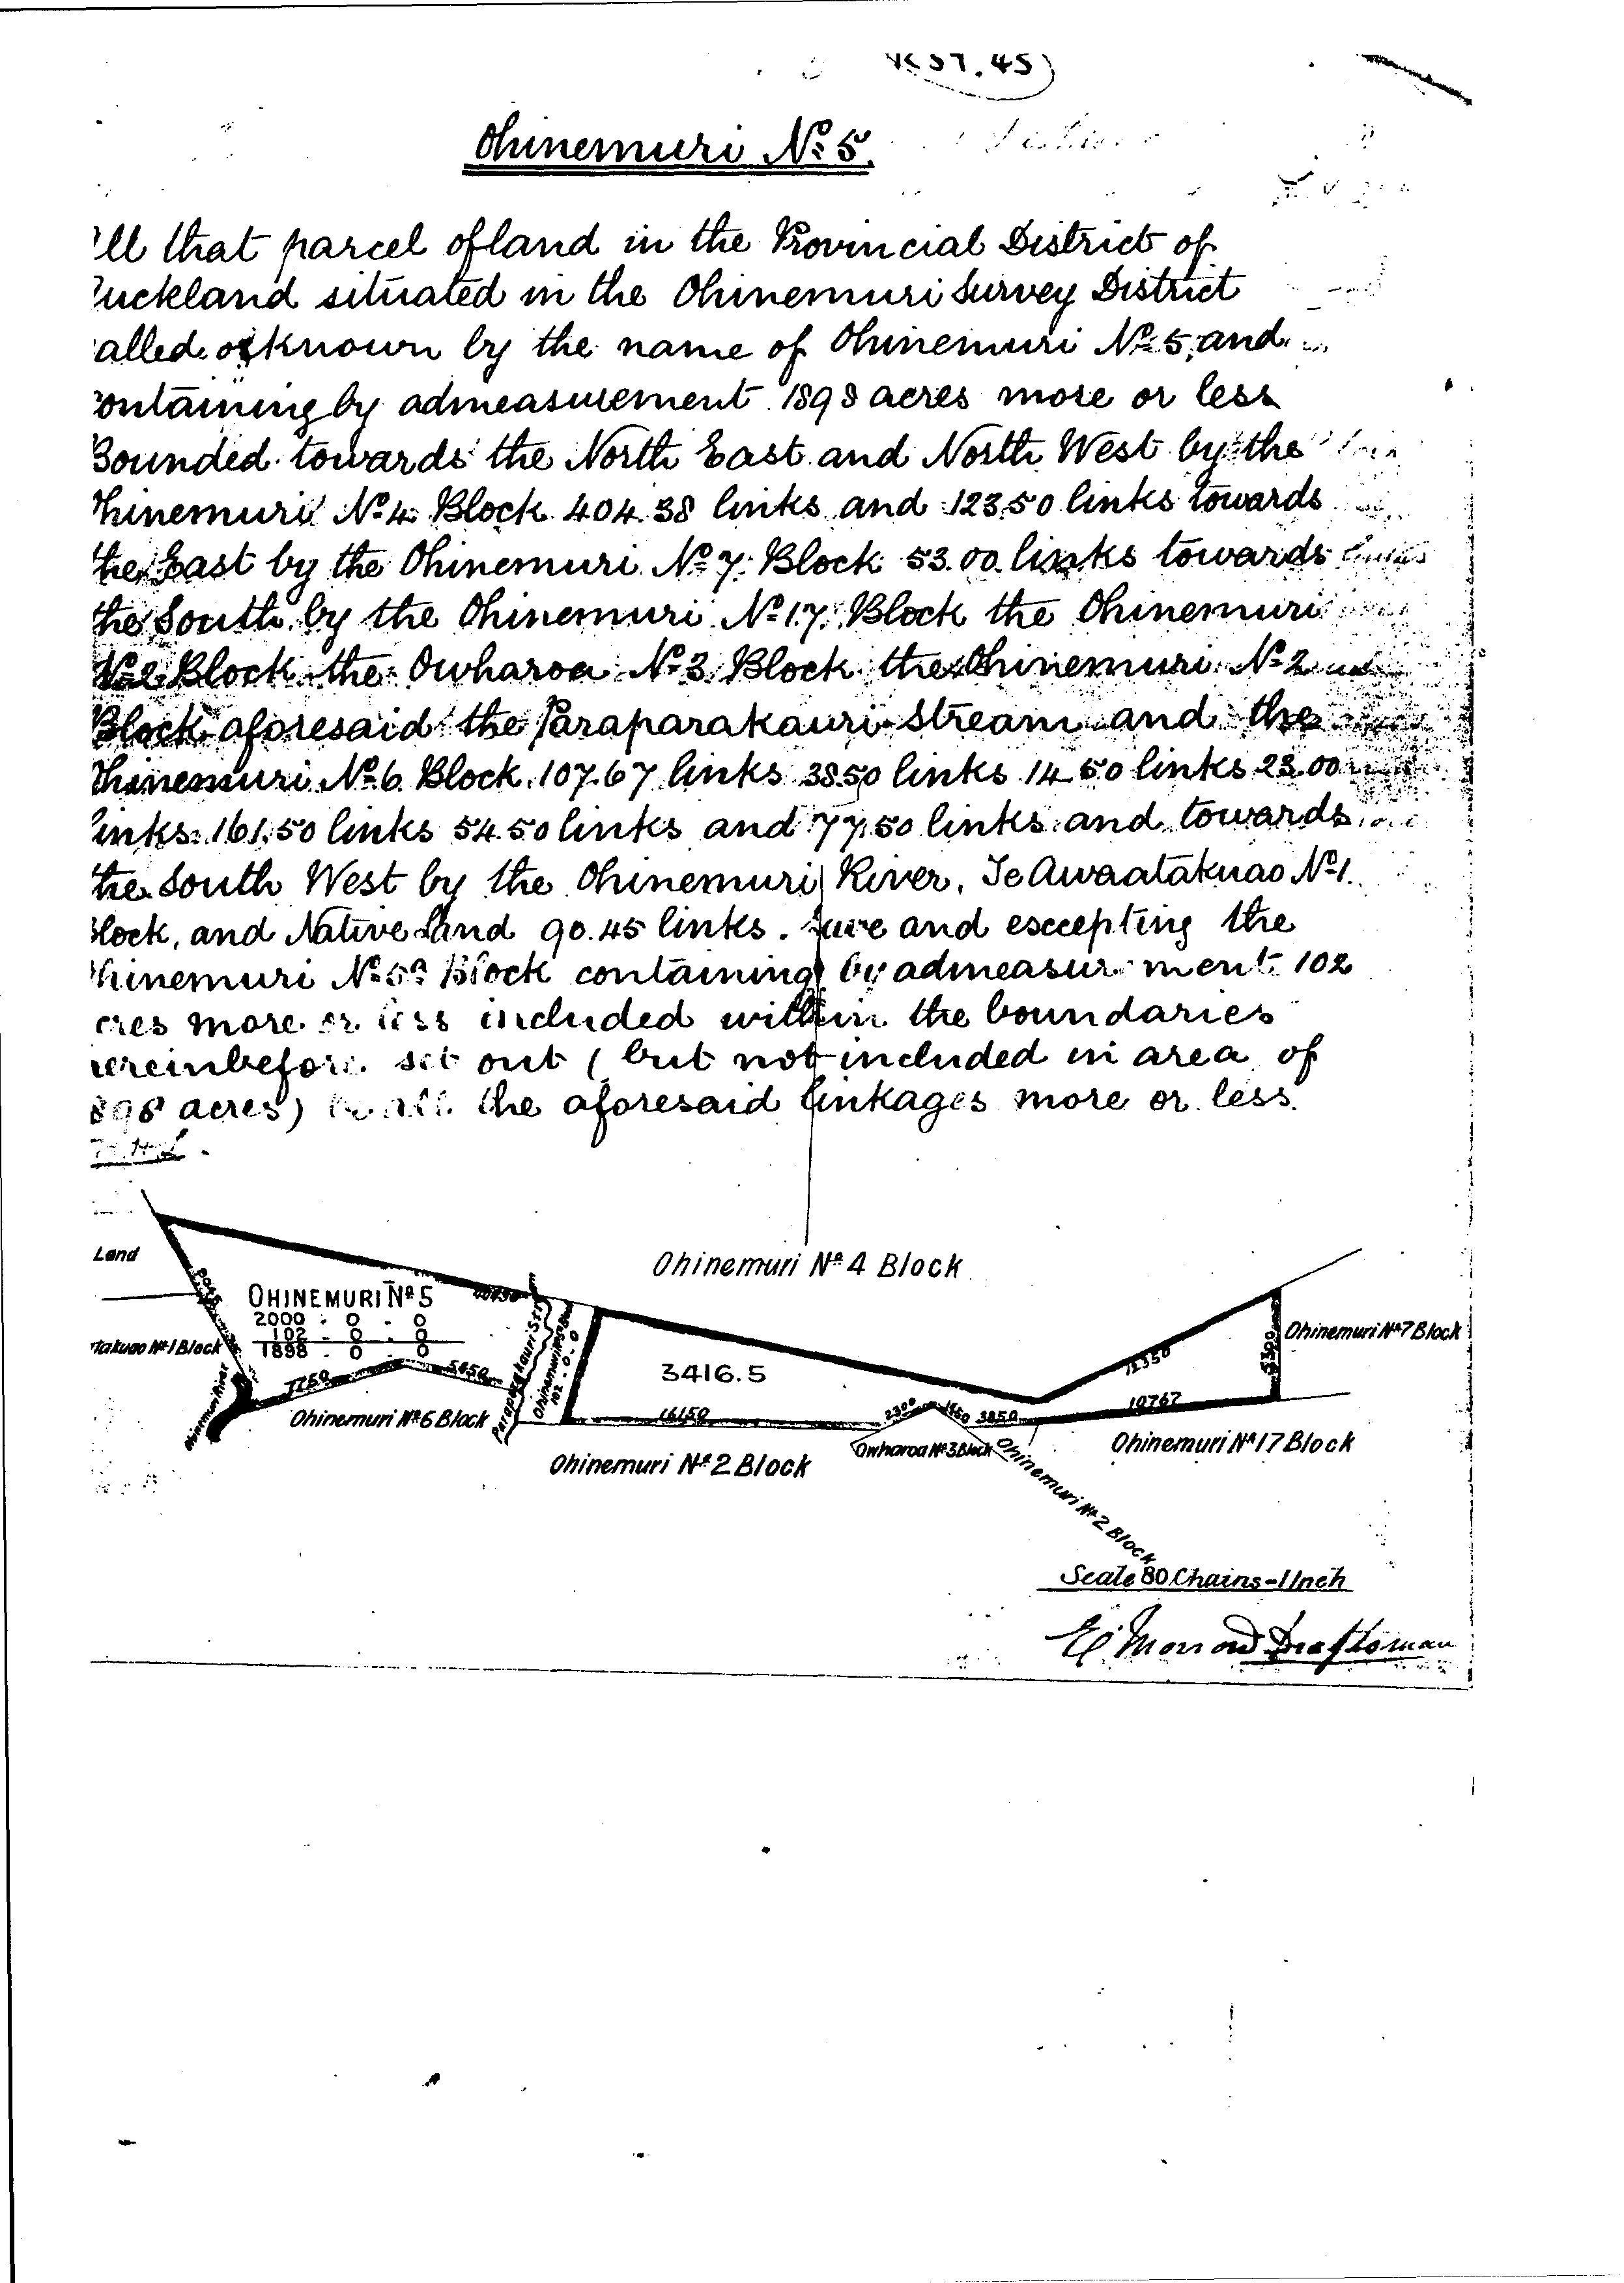 57.45)
Ohinemuri No 5.
ll that parcel of land in the Provincial District of
uckland situated in the Ohinemuri Survey District
alled or known by the name of Ohinemuri No 5, and
ontaining by admeasurement 1898 acres more or less
Bounded towards the North East and North West by the
hinemuri No 4 Block 404.38 links and 123.50 links towards
the East by the Ohinemuri No 7 Block 53.00 links towards
the South by the Ohinemuri No 17 Block the Ohinemuri
No 2 Block the Owharoa No 3 Block the Ohinemuri No 2
Block aforesaid the Paraparakauri Stream and the
hinemuri No 6 Block 107.67 links 38.50 links 14.50 links 23.00
inks 161.50 links 54.50 links and 77.50 links and towards
the South West by the Ohinemuri River, Te Awaatakuao No 1
lock, and Native Land 90.45 links. Save and excepting the
hinemuri No 5a Block containing by admeasurement 102
cres more or less included within the boundaries
ereinbefore set out (but not included in area of
898 acres) be all the aforesaid linkages more or less.
Land
Ohinemuri No 4 Block
9045
OHINEMURI No 5
40438
2000 . 0 . 0
102 . 0 . 0
1898 . 0 . 0
takuao No 1 Block
Ohinemuri River
7750
5450
Paraparakauri Str
102-0-0
3416.5
12350
5300
Ohinemuri No 7 Block
16150
2300
1450
3850
10767
Ohinemuri No 6 Block
Ohinemuri No 2 Block
Owharoa No 3 Block
Ohinemuri No 2 Block
Ohinemuri No 17 Block
Scale 80 Chains-1 Inch
Draftsman